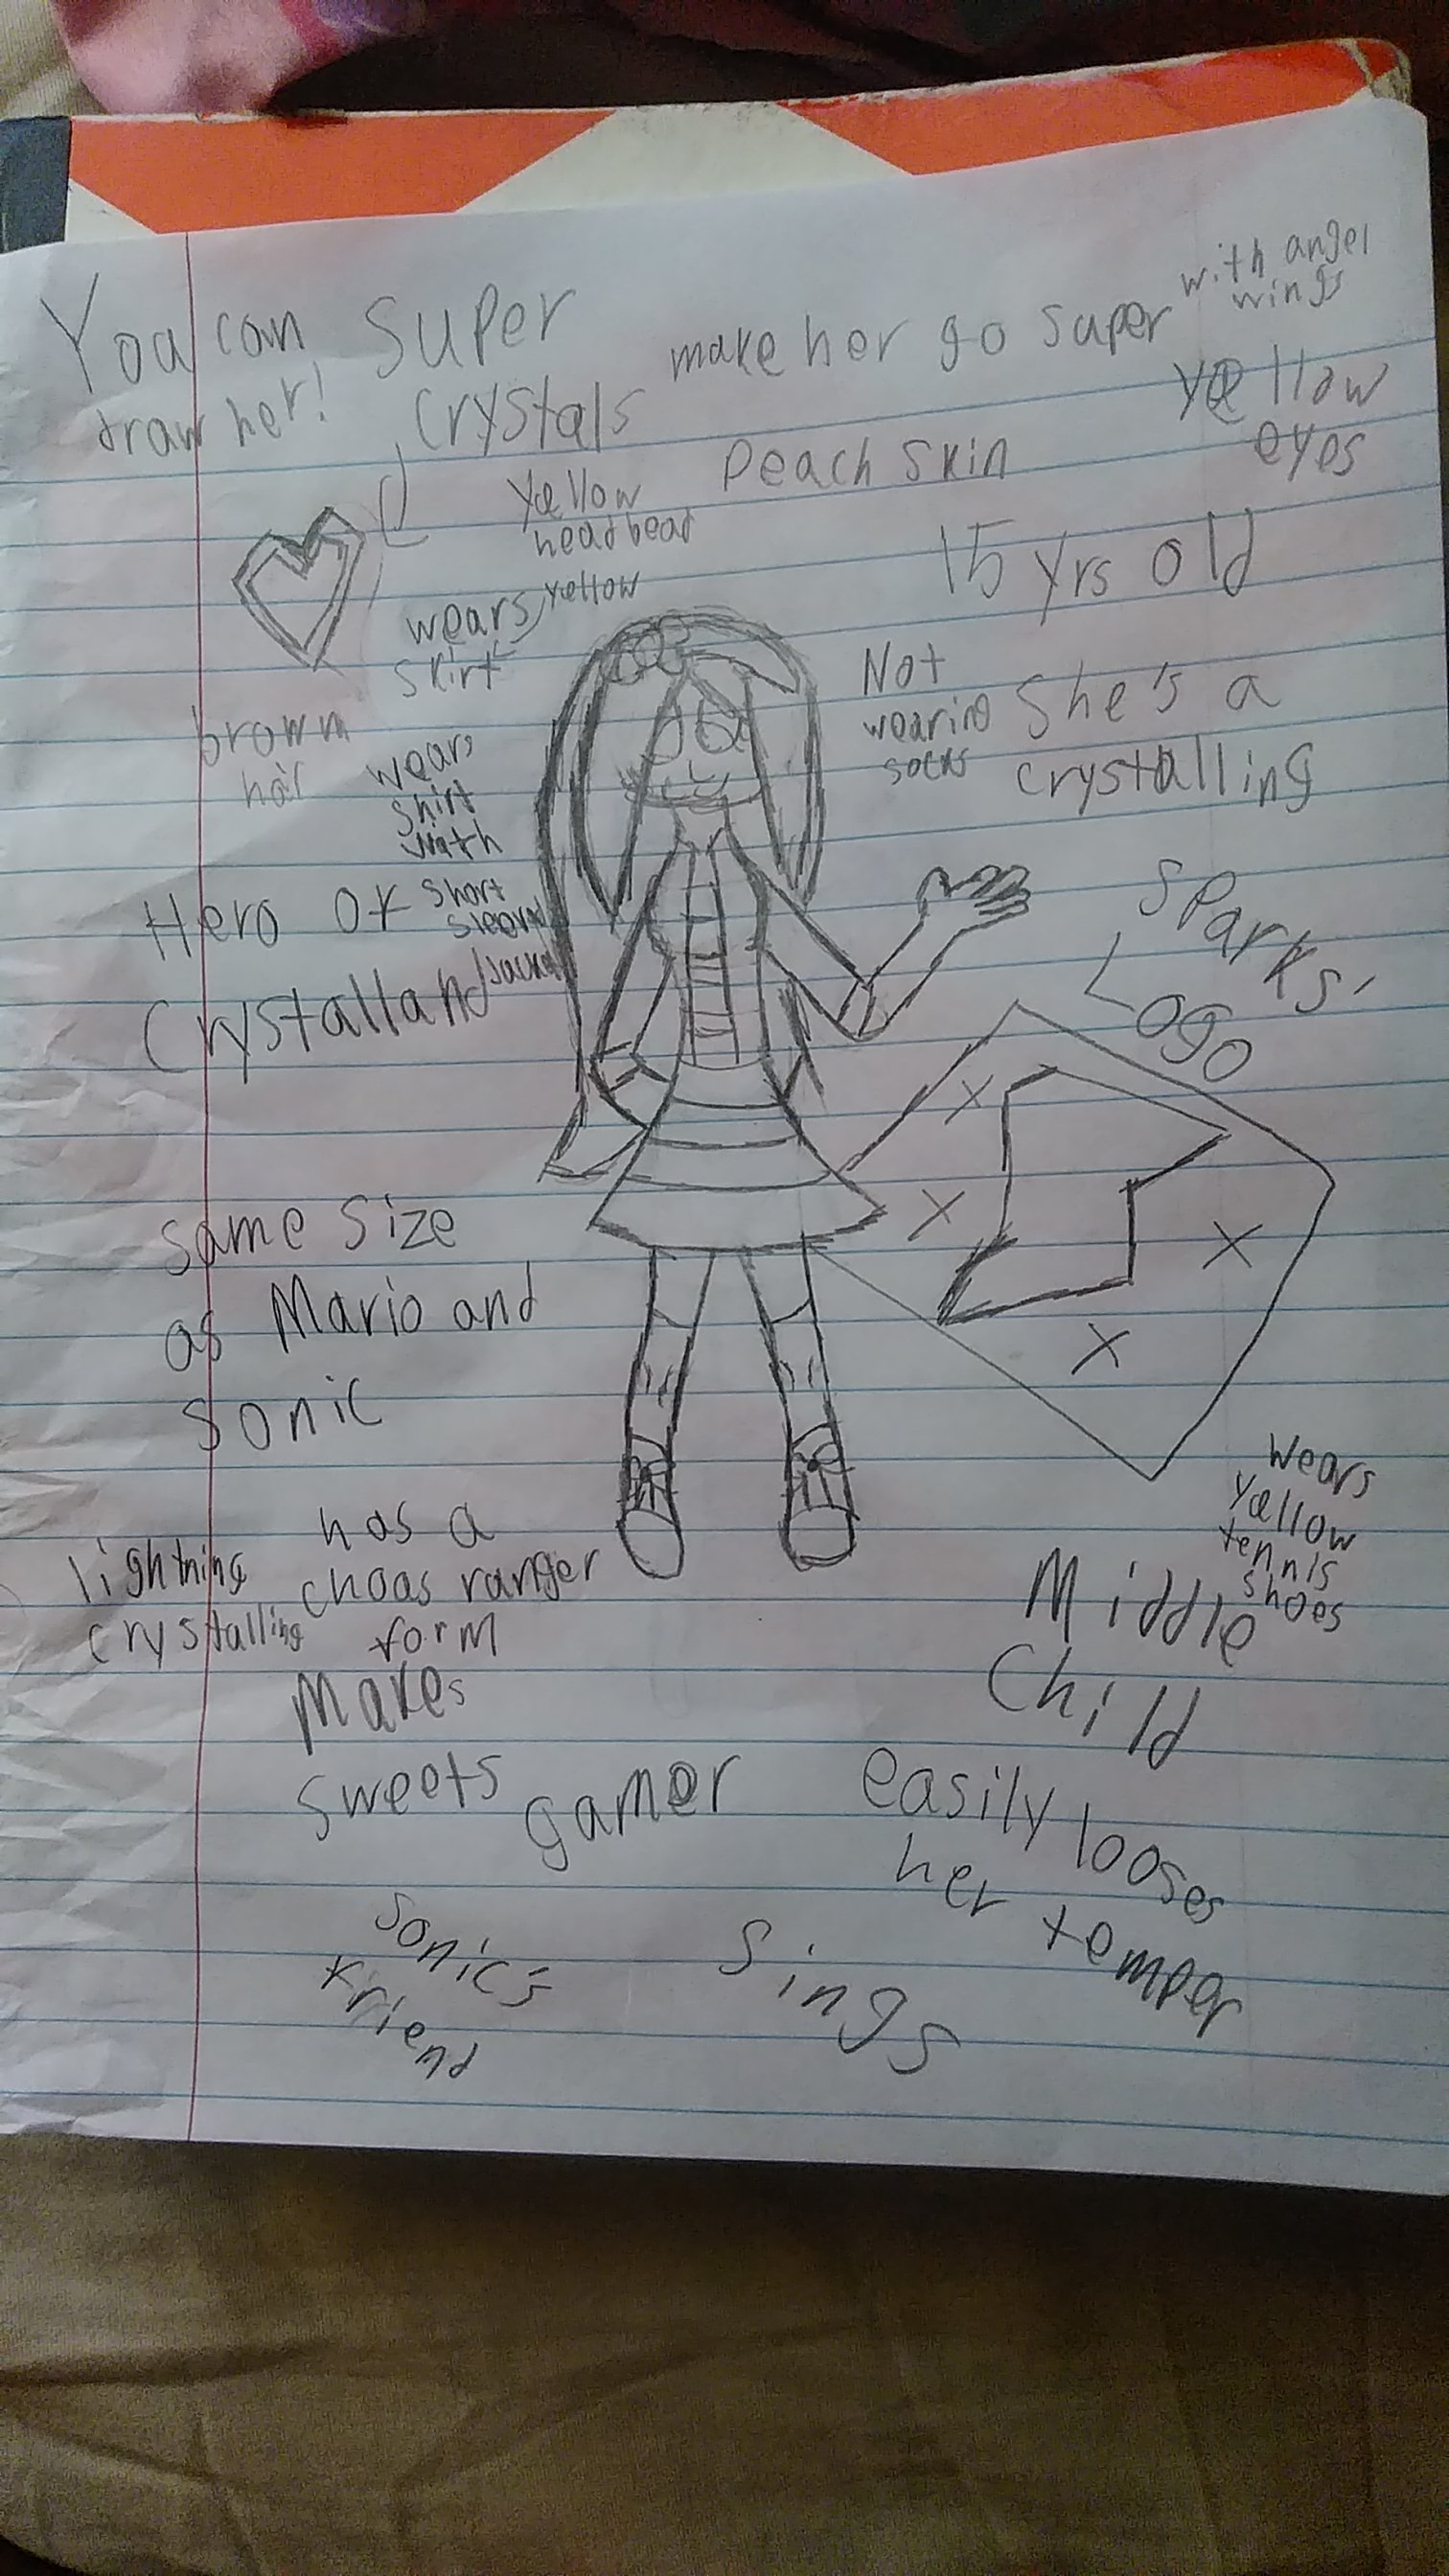 You can
draw her!
super
crystals
make her go super
with angel
wings
yellow
eyes
yellow
headbead
peach skin
15 yrs old
wears yellow
skirt
Not
wearing
socks
She's a
crystalling
brown
hair
wears
shirt
with
short
sleeved
Hero of
Crystalland
Sparks'
Logo
same size
as Mario and
Sonic
wears
yellow
tennis
shoes
lightning
crystalling
has a
choas ranger
form
Middle
Child
Makes
sweets
gamer
easily looses
her temper
Sonic's
friend
Sings